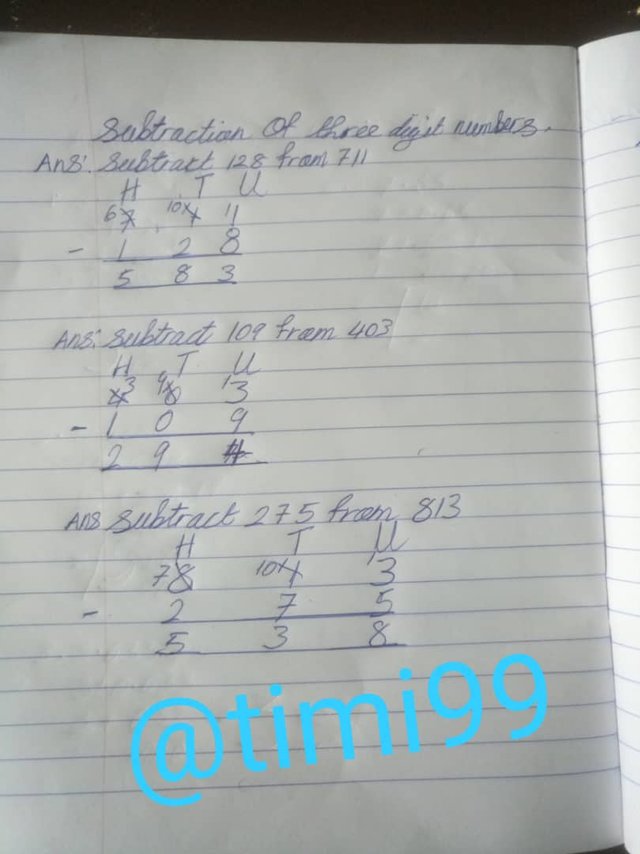 Subtraction Of three digit numbers.
Ans: Subtract 128 from 711
H T U
6 7 10 1 11
- 1 2 8
5 8 3
Ans: Subtract 109 from 403
H T U
4 3 9 10 13
- 1 0 9
2 9 4
Ans Subtract 275 from 813
H T U
7 8 10 1 13
- 2 7 5
5 3 8
@timi99